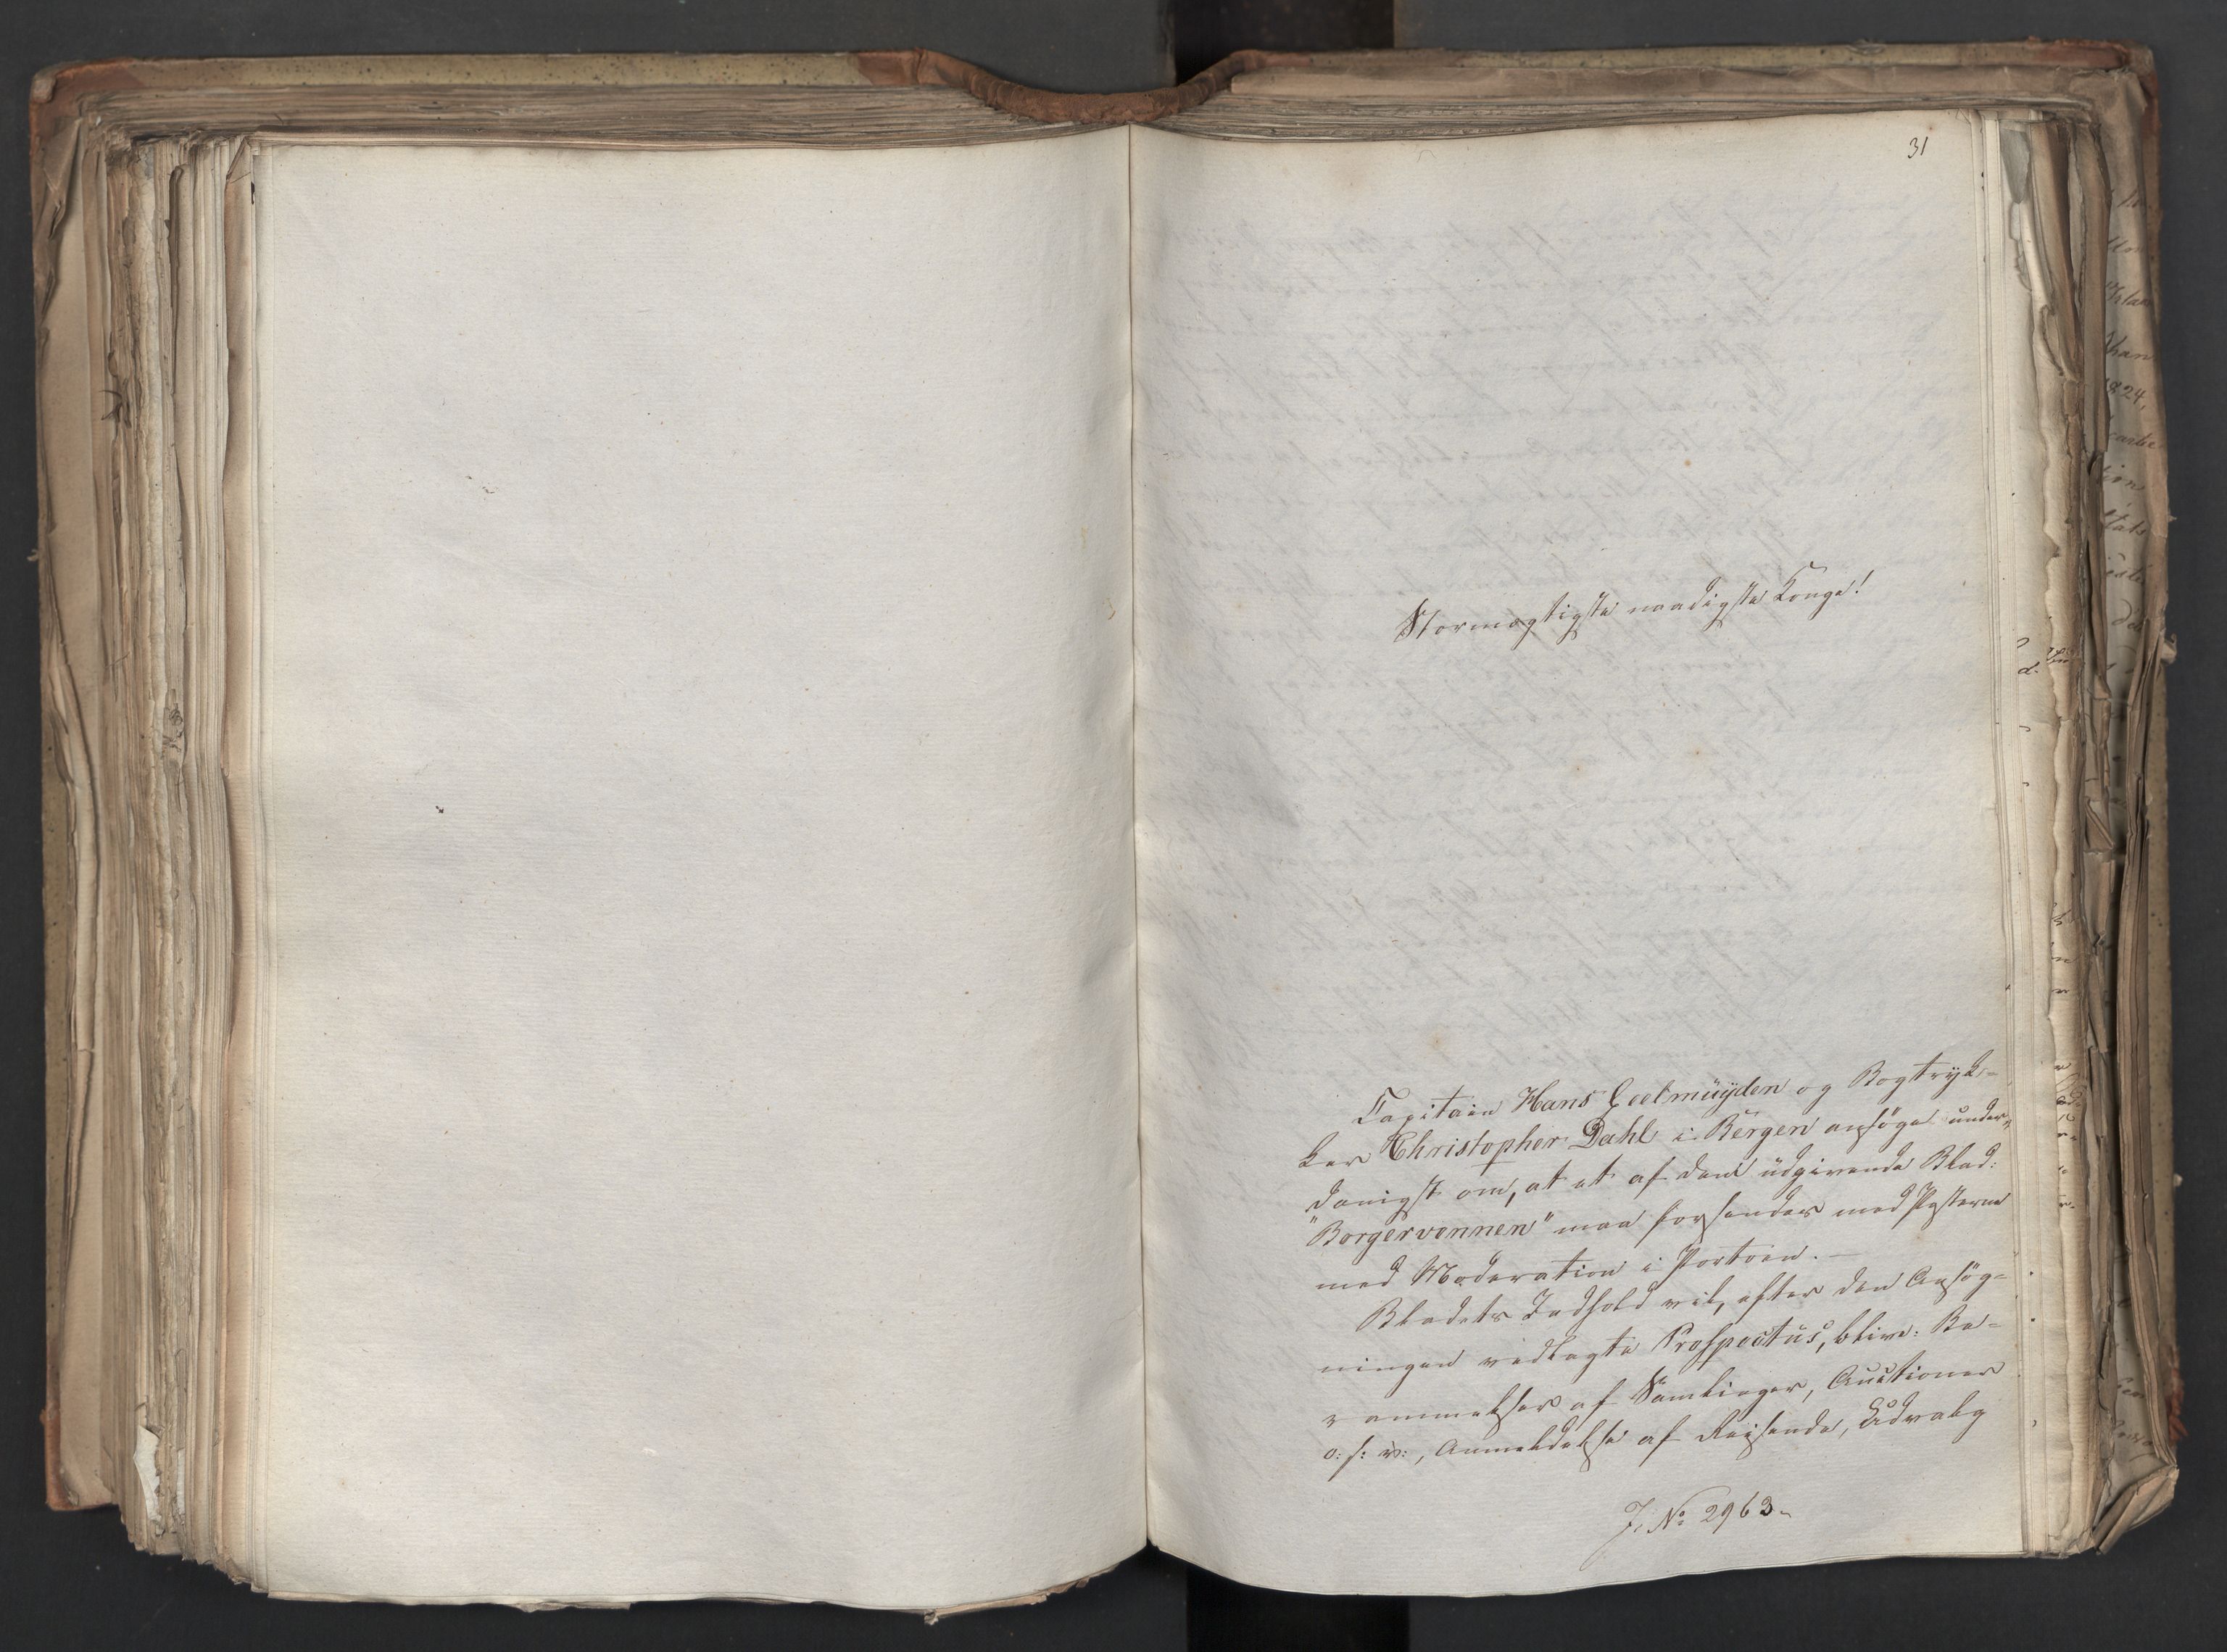 31
Stormægtigste naadigste Konge!
Capitain Hans Geelmüyden og Bogtryk-
ker Christopher Dahl i Bergen ansøge under-
danigst om, at et af dem üdgivende Blad:
"Borgervennen" maa forsendes med Posterne
med Moderation i Portoen. —
Bladets Indhold vil, efter den Ansøg-
ningen vedlagte Prospectüs, blive: Be-
rammelser af Samlinger, Auctioner
o: s: v:, Anmeldelse af Reisende, Udvalg
J. No 2963.